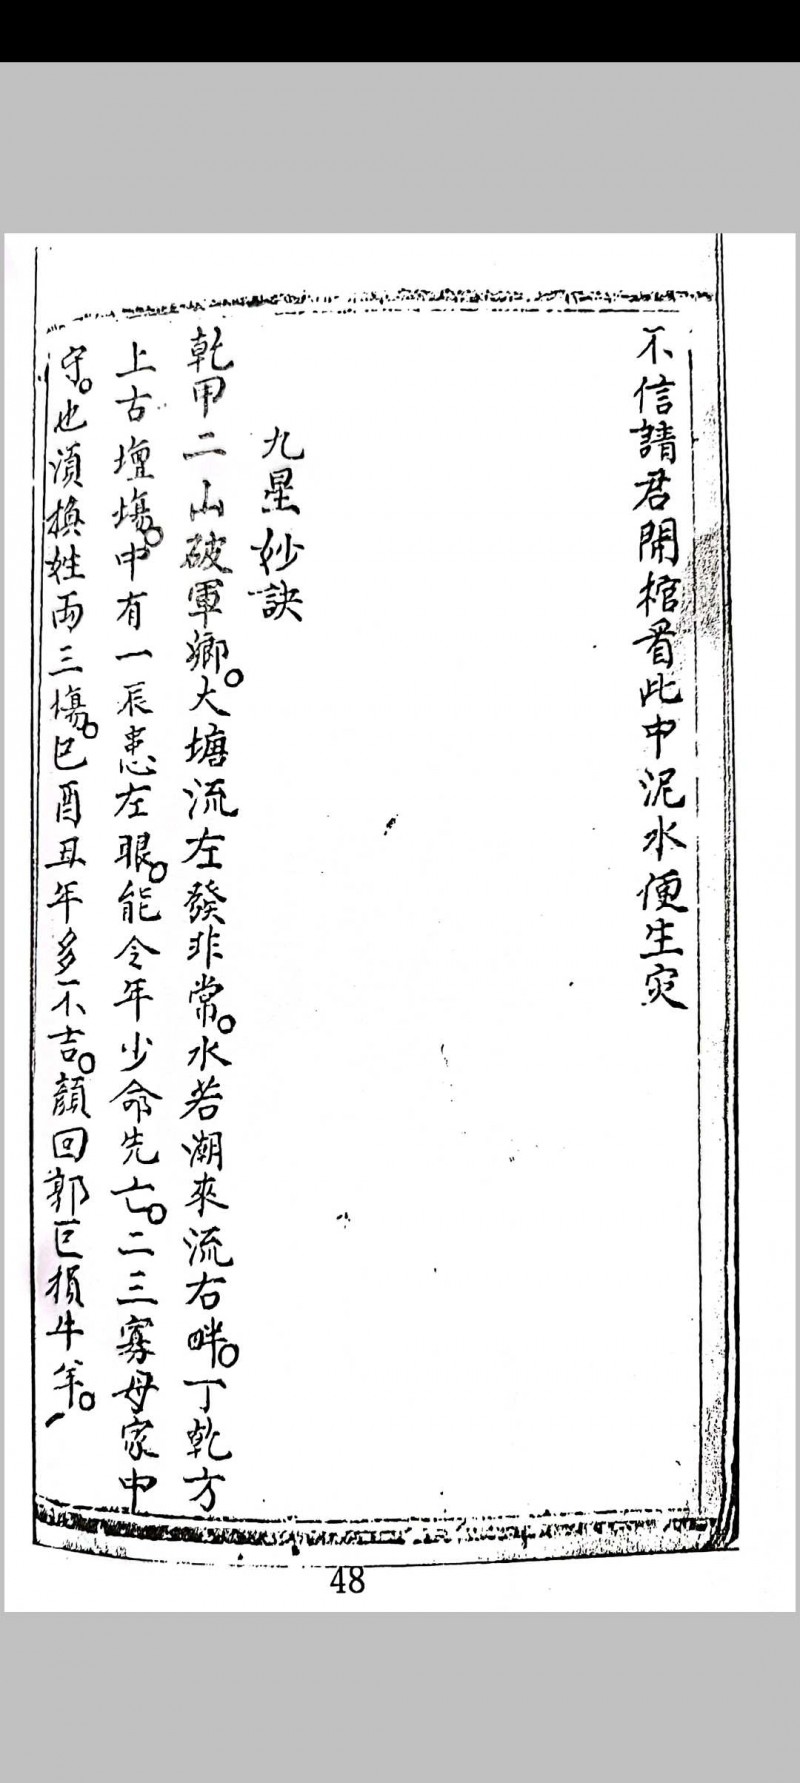 不信請君開棺看此中泥水便生灾
九星妙訣
乾甲二山破軍鄉。大塘流左發非常。水若潮來流右畔。丁乾方
上古壇塲。中有一辰患左眼。能令年少命先亡。二三寡母家中
守。也湏換姓两三塲。巳酉丑年多不吉。顏回郭巨損牛羊。
48